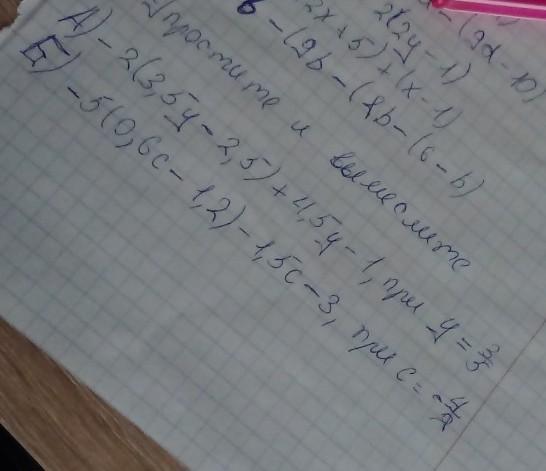 - (9d - 10)
2(2y - 1)
2x + 5) + (x - 1)
b - (9b - (8b - (6 - b)
Упростите и вычеслите
А) - 2(3,5y - 2,5) + 4,5y - 1, при y = 2/3
Б) - 5(0,6c - 1,2) - 1,5c - 3, при c =